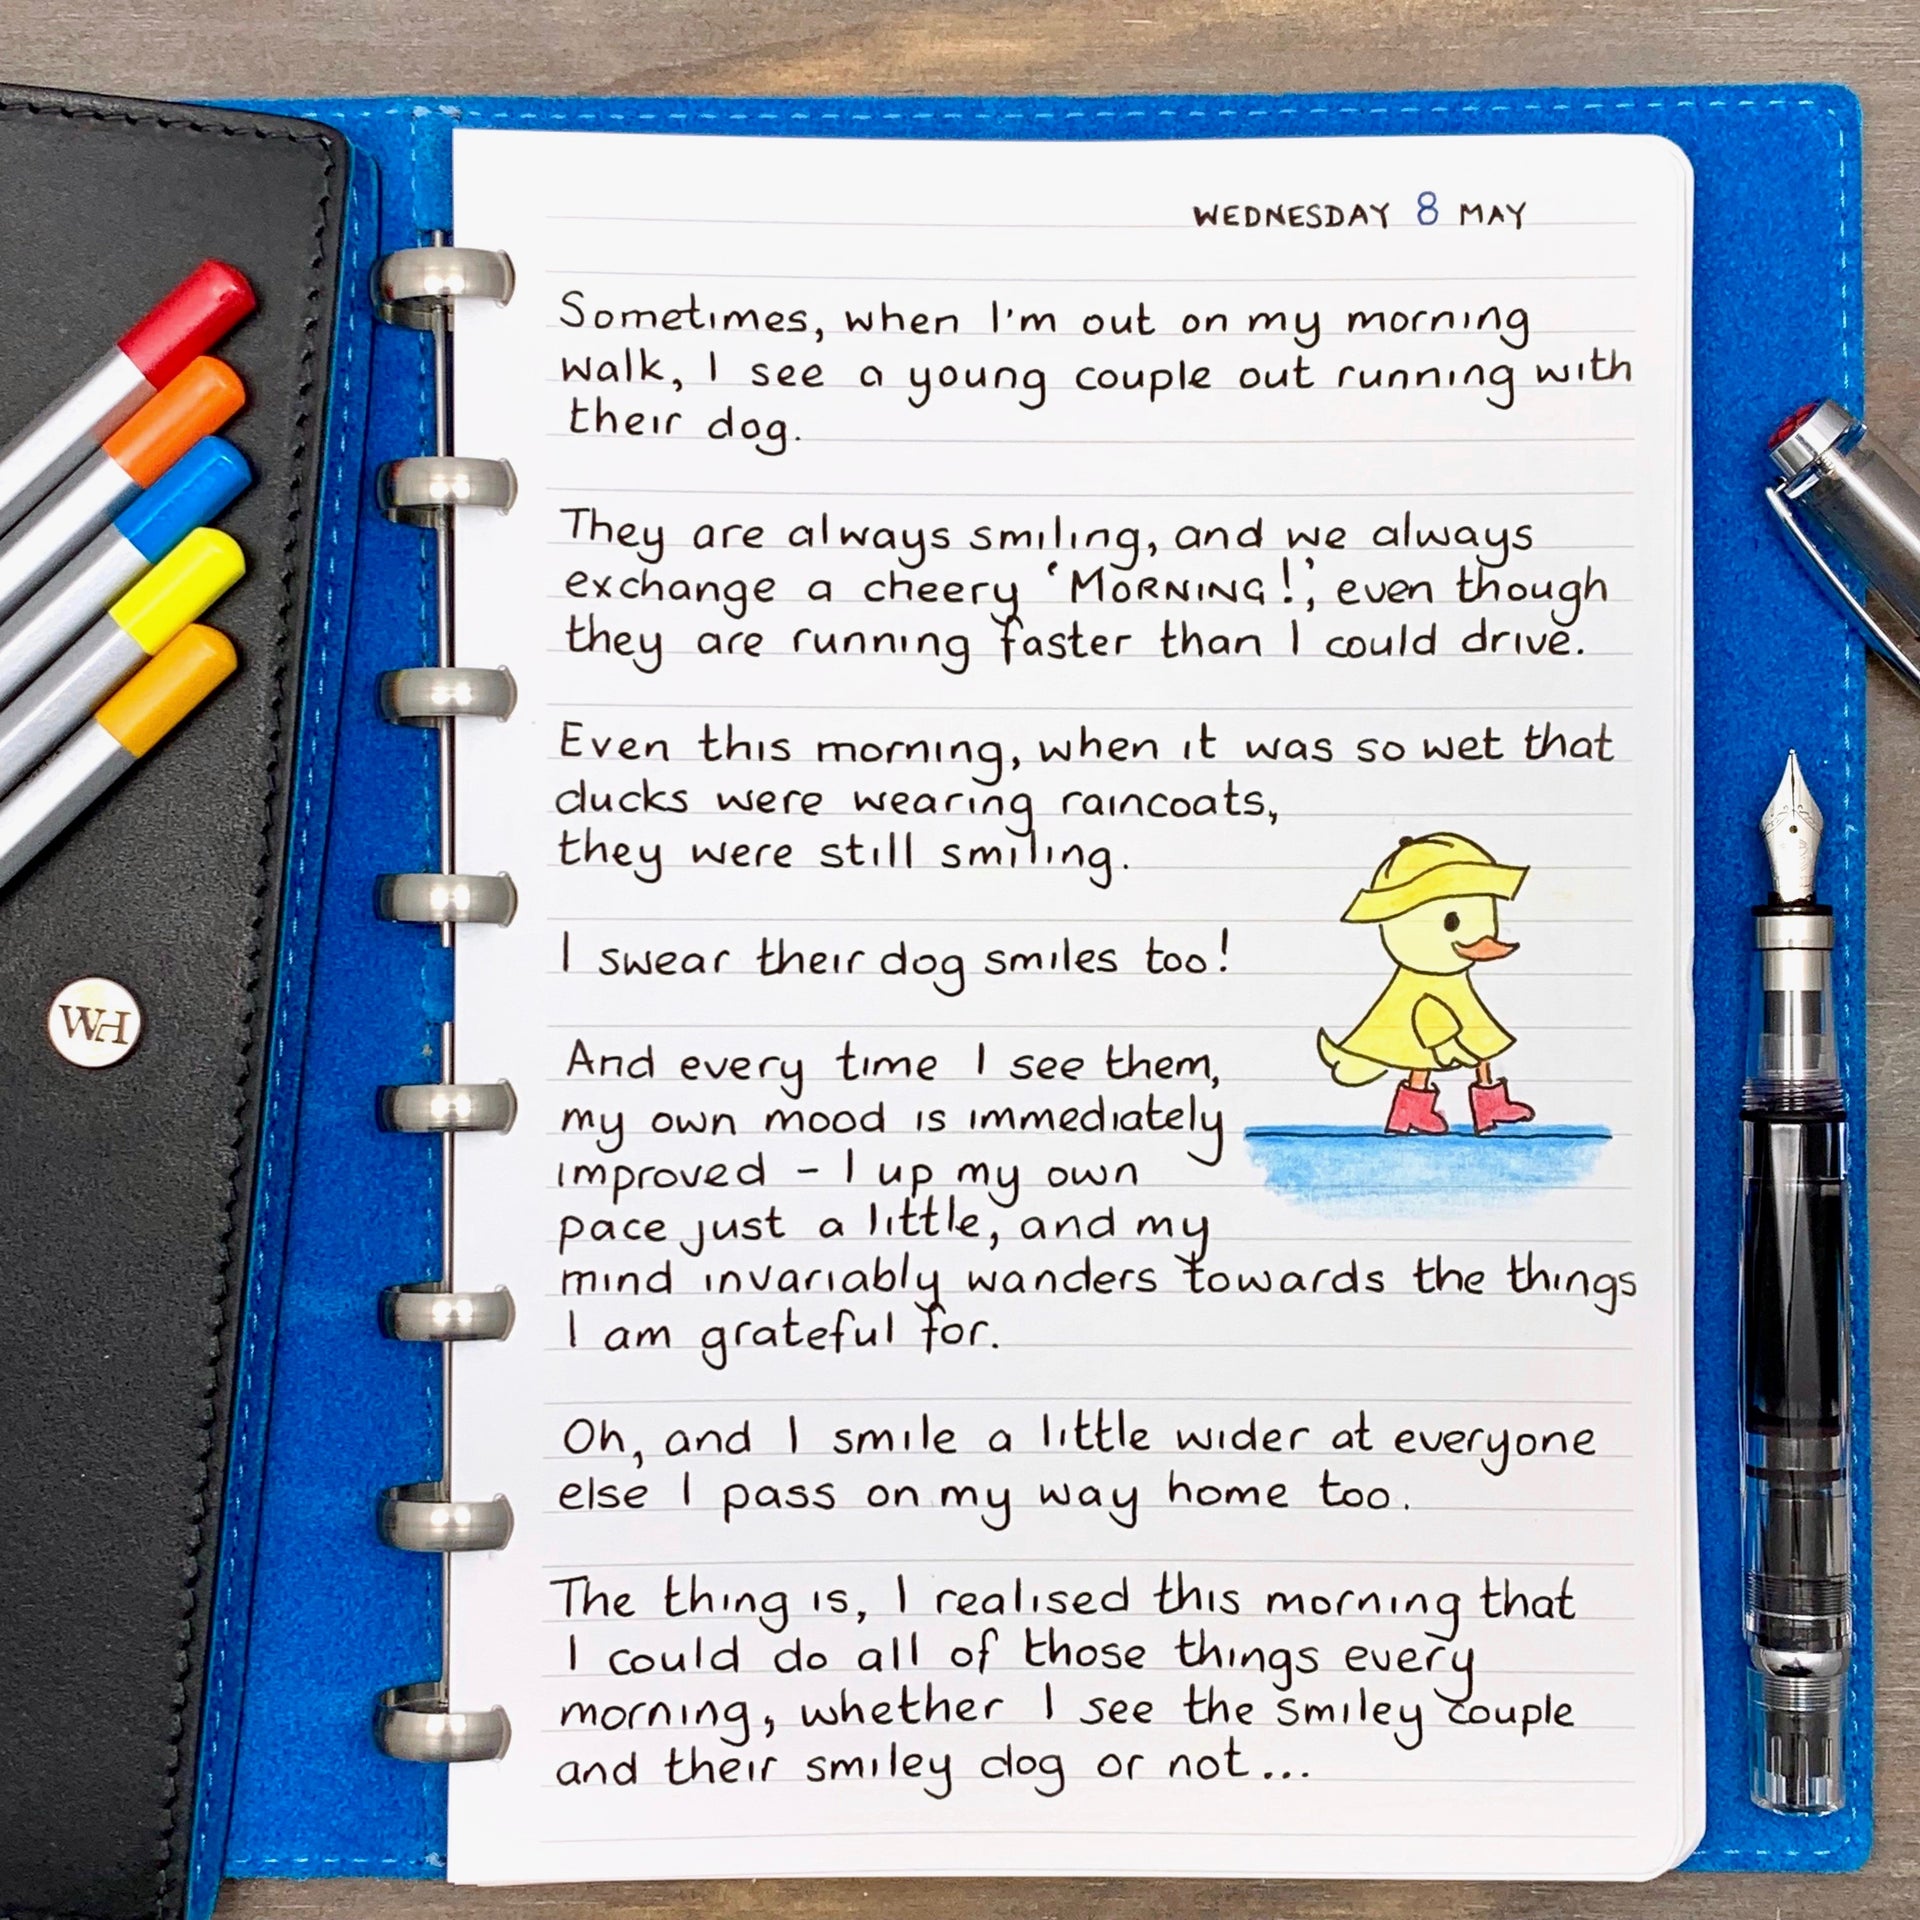 WEDNESDAY 8 MAY
Sometimes, when I'm out on my morning
walk, I see a young couple out running with
their dog.
They are always smiling, and we always
exchange a cheery 'MORNING!', even though
they are running faster than I could drive.
Even this morning, when it was so wet that
ducks were wearing raincoats,
they were still smiling.
I swear their dog smiles too!
And every time I see them,
my own mood is immediately
improved - I up my own
pace just a little, and my
mind invariably wanders towards the things
I am grateful for.
Oh, and I smile a little wider at everyone
else I pass on my way home too.
The thing is, I realised this morning that
I could do all of those things every
morning, whether I see the smiley couple
and their smiley dog or not...
WH